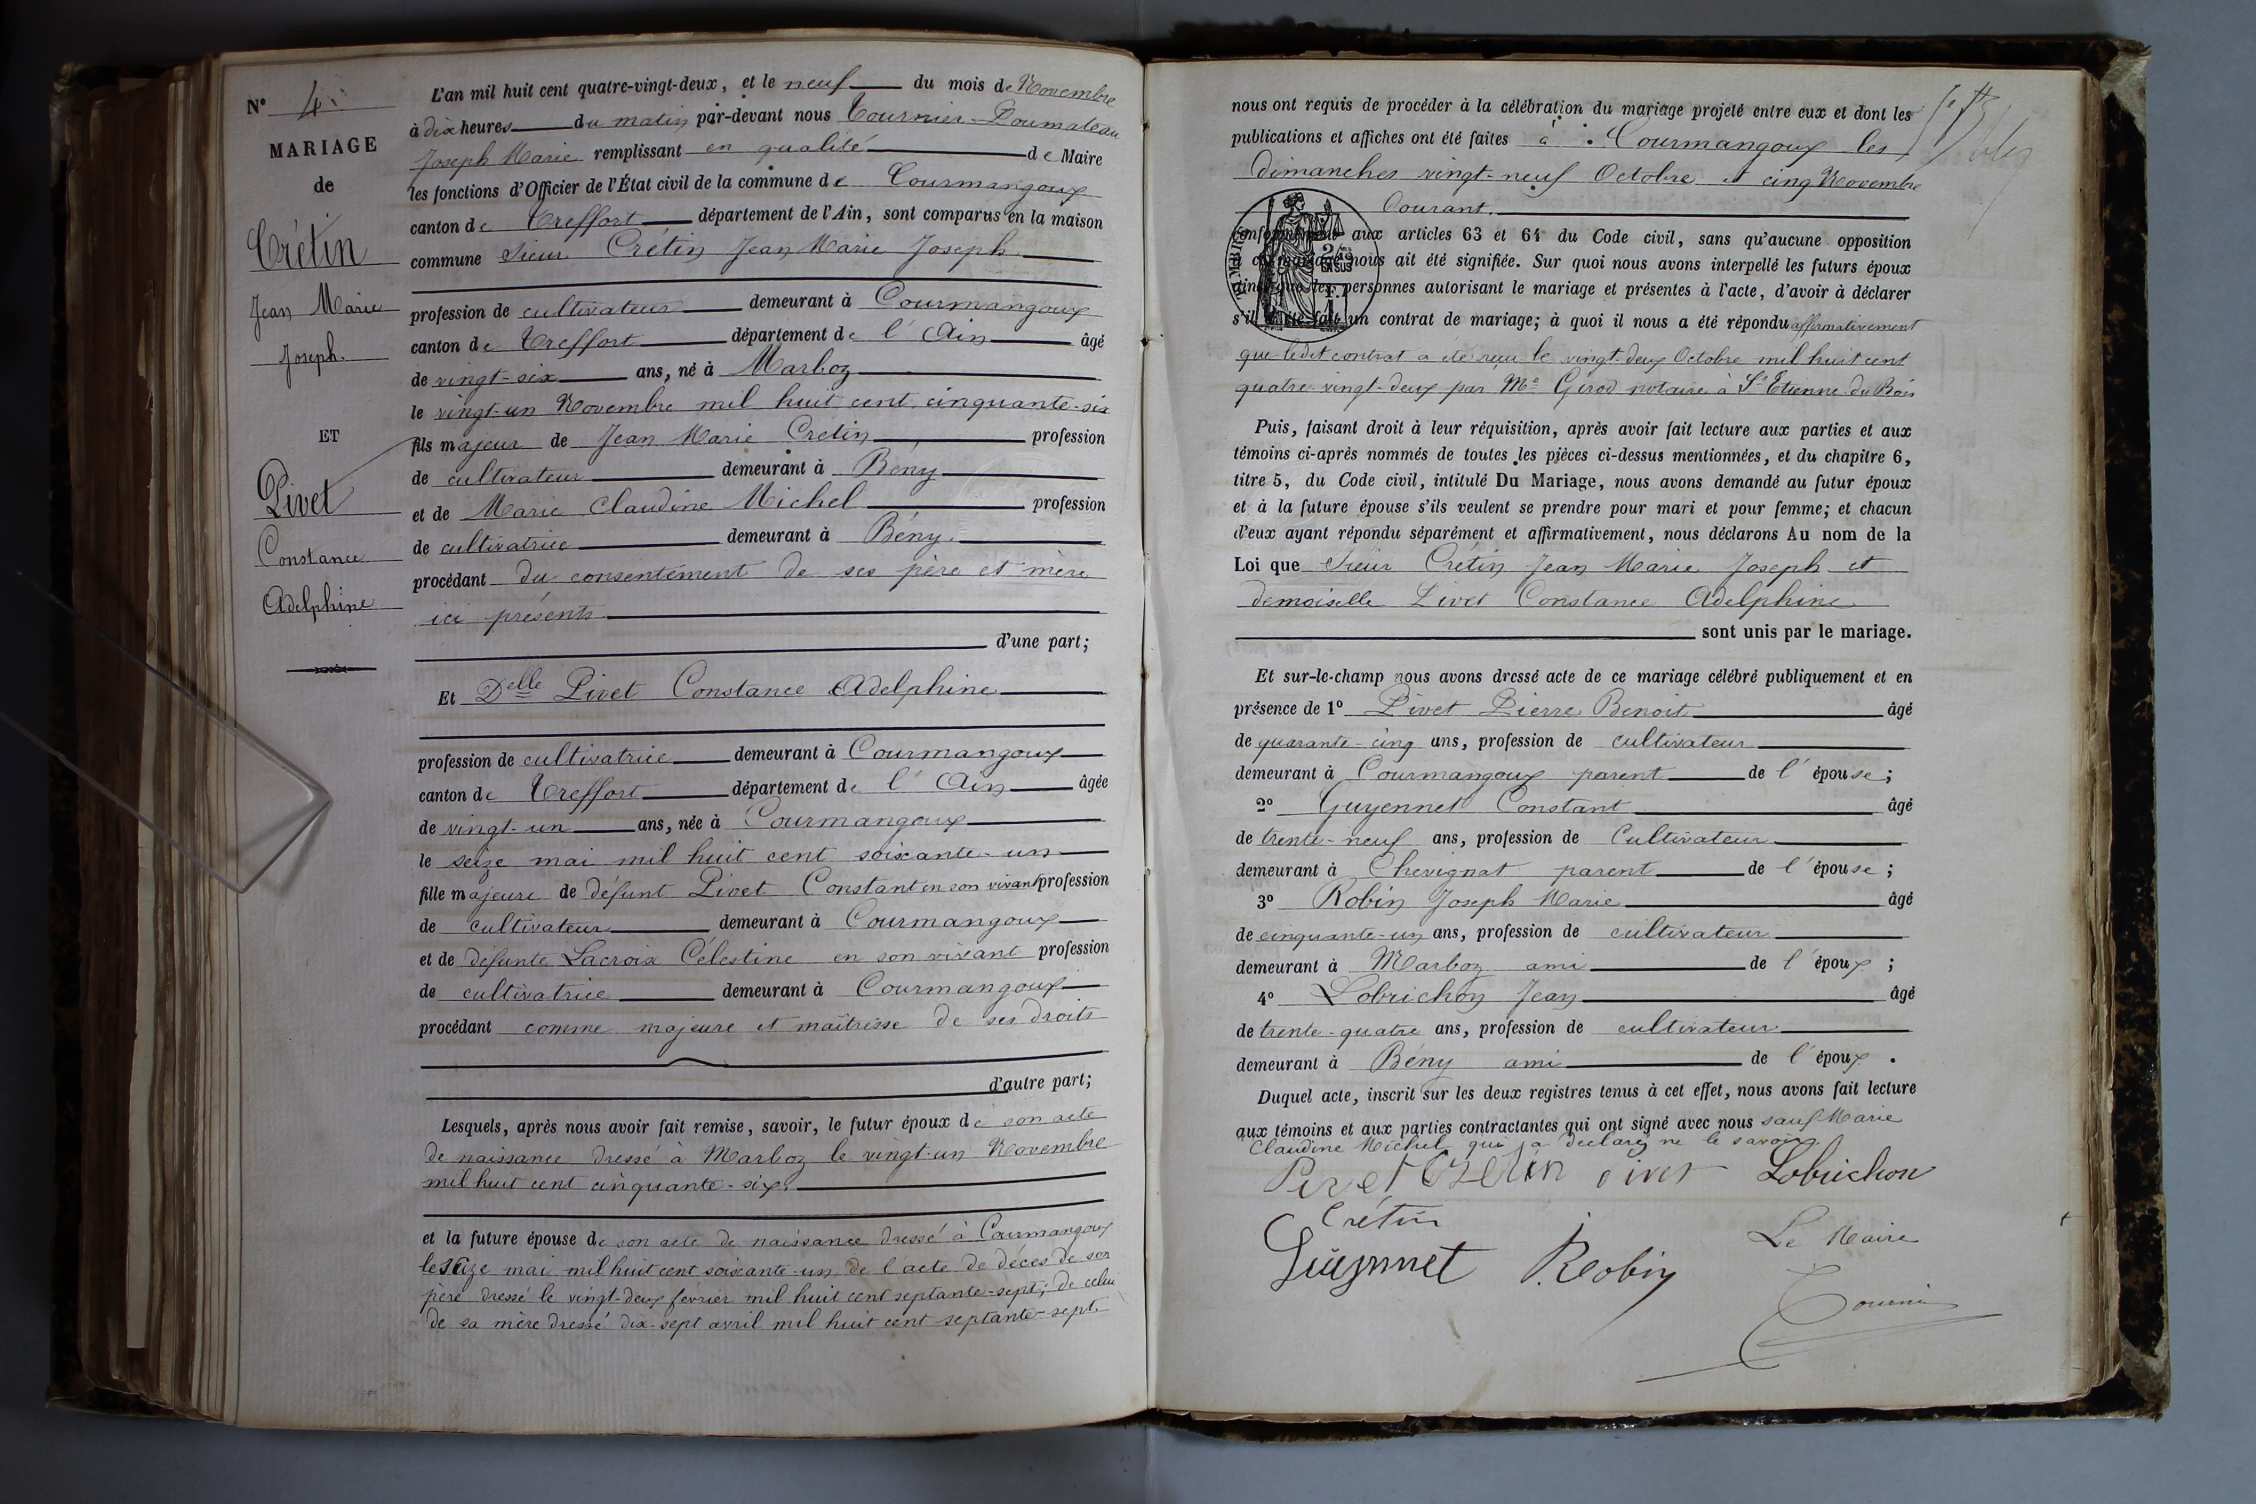 N° 4
MARIAGE
de
Crétin
Jean Marie
Joseph.
ET
Pivet
Constance
Adelphine
L'an mil huit cent quatre-vingt-deux, et le neuf du mois de Novembre
à dix heures du matin par-devant nous Tournier-Doumateau
Joseph Marie remplissant en qualité de Maire
les fonctions d'Officier de l'État civil de la commune de Courmangoux
canton de Treffort département de l'Ain, sont comparus en la maison
commune Sieur Crétin Jean Marie Joseph
profession de cultivateur demeurant à Courmangoux
canton de Treffort département de l'Ain âgé
de vingt-six ans, né à Marboz
le vingt-un Novembre mil huit cent cinquante-six
fils majeur de Jean Marie Cretin profession
de cultivateur demeurant à Bény
et de Marie Claudine Michel profession
de cultivatrice demeurant à Bény
procédant du consentement de ses père et mère
ici présents
d'une part;
Et Delle Pivet Constance Adelphine
profession de cultivatrice demeurant à Courmangoux
canton de Treffort département de l'Ain âgée
de vingt-un ans, née à Courmangoux
le seize mai mil huit cent soixante-un
fille majeure de défunt Pivet Constant en son vivant profession
de cultivateur demeurant à Courmangoux
et de défunte Lacroix Célestine en son vivant profession
de cultivatrice demeurant à Courmangoux
procédant comme majeure et maîtresse de ses droits
d'autre part;
Lesquels, après nous avoir fait remise, savoir, le futur époux de son acte
de naissance dressé à Marboz le vingt-un Novembre
mil huit cent cinquante-six.
et la future épouse de son acte de naissance dressé à Courmangoux
le seize mai mil huit cent soixante-un, de l'acte de décès de son
père dressé le vingt-deux fevrier mil huit cent septante-sept; de celui
de sa mère dressé dix-sept avril mil huit cent septante-sept
nous ont requis de procéder à la célébration du mariage projeté entre eux et dont les
publications et affiches ont été faites à Courmangoux les
dimanches vingt-neuf Octobre et cinq Novembre
Courant.
conformément aux articles 63 et 64 du Code civil, sans qu'aucune opposition
à ce mariage nous ait été signifiée. Sur quoi nous avons interpellé les futurs époux
ainsi que les personnes autorisant le mariage et présentes à l'acte, d'avoir à déclarer
s'il a été fait un contrat de mariage; à quoi il nous a été répondu affirmativement
que ledit contrat a été reçu le vingt-deux Octobre mil huit cent
quatre vingt-deux par Me Girod notaire à St Etienne-du-Bois
Puis, faisant droit à leur réquisition, après avoir fait lecture aux parties et aux
témoins ci-après nommés de toutes les pièces ci-dessus mentionnées, et du chapitre 6,
titre 5, du Code civil, intitulé Du Mariage, nous avons demandé au futur époux
et à la future épouse s'ils veulent se prendre pour mari et pour femme; et chacun
d'eux ayant répondu séparément et affirmativement, nous déclarons Au nom de la
Loi que Sieur Crétin Jean Marie Joseph et
demoiselle Livet Constance Adelphine
sont unis par le mariage.
Et sur-le-champ nous avons dressé acte de ce mariage célébré publiquement et en
présence de 1° Pivet Pierre Benoit âgé
de quarante-cinq ans, profession de cultivateur
demeurant à Courmangoux parent de l'épouse;
2° Guyennet Constant âgé
de trente-neuf ans, profession de Cultivateur
demeurant à Chevignat parent de l'épouse;
3° Robin Joseph Marie âgé
de cinquante-un ans, profession de cultivateur
demeurant à Marboz ami de l'époux;
4° Lobrichon Jean âgé
de trente-quatre ans, profession de cultivateur
demeurant à Bény ami de l'époux.
Duquel acte, inscrit sur les deux registres tenus à cet effet, nous avons fait lecture
aux témoins et aux parties contractantes qui ont signé avec nous sauf Marie
Claudine Michel qui a déclaré ne le savoir.
Pivet Cretin Pivet Lobrichon
Crétin
Guiynnet Robin Le Maire
Tournier